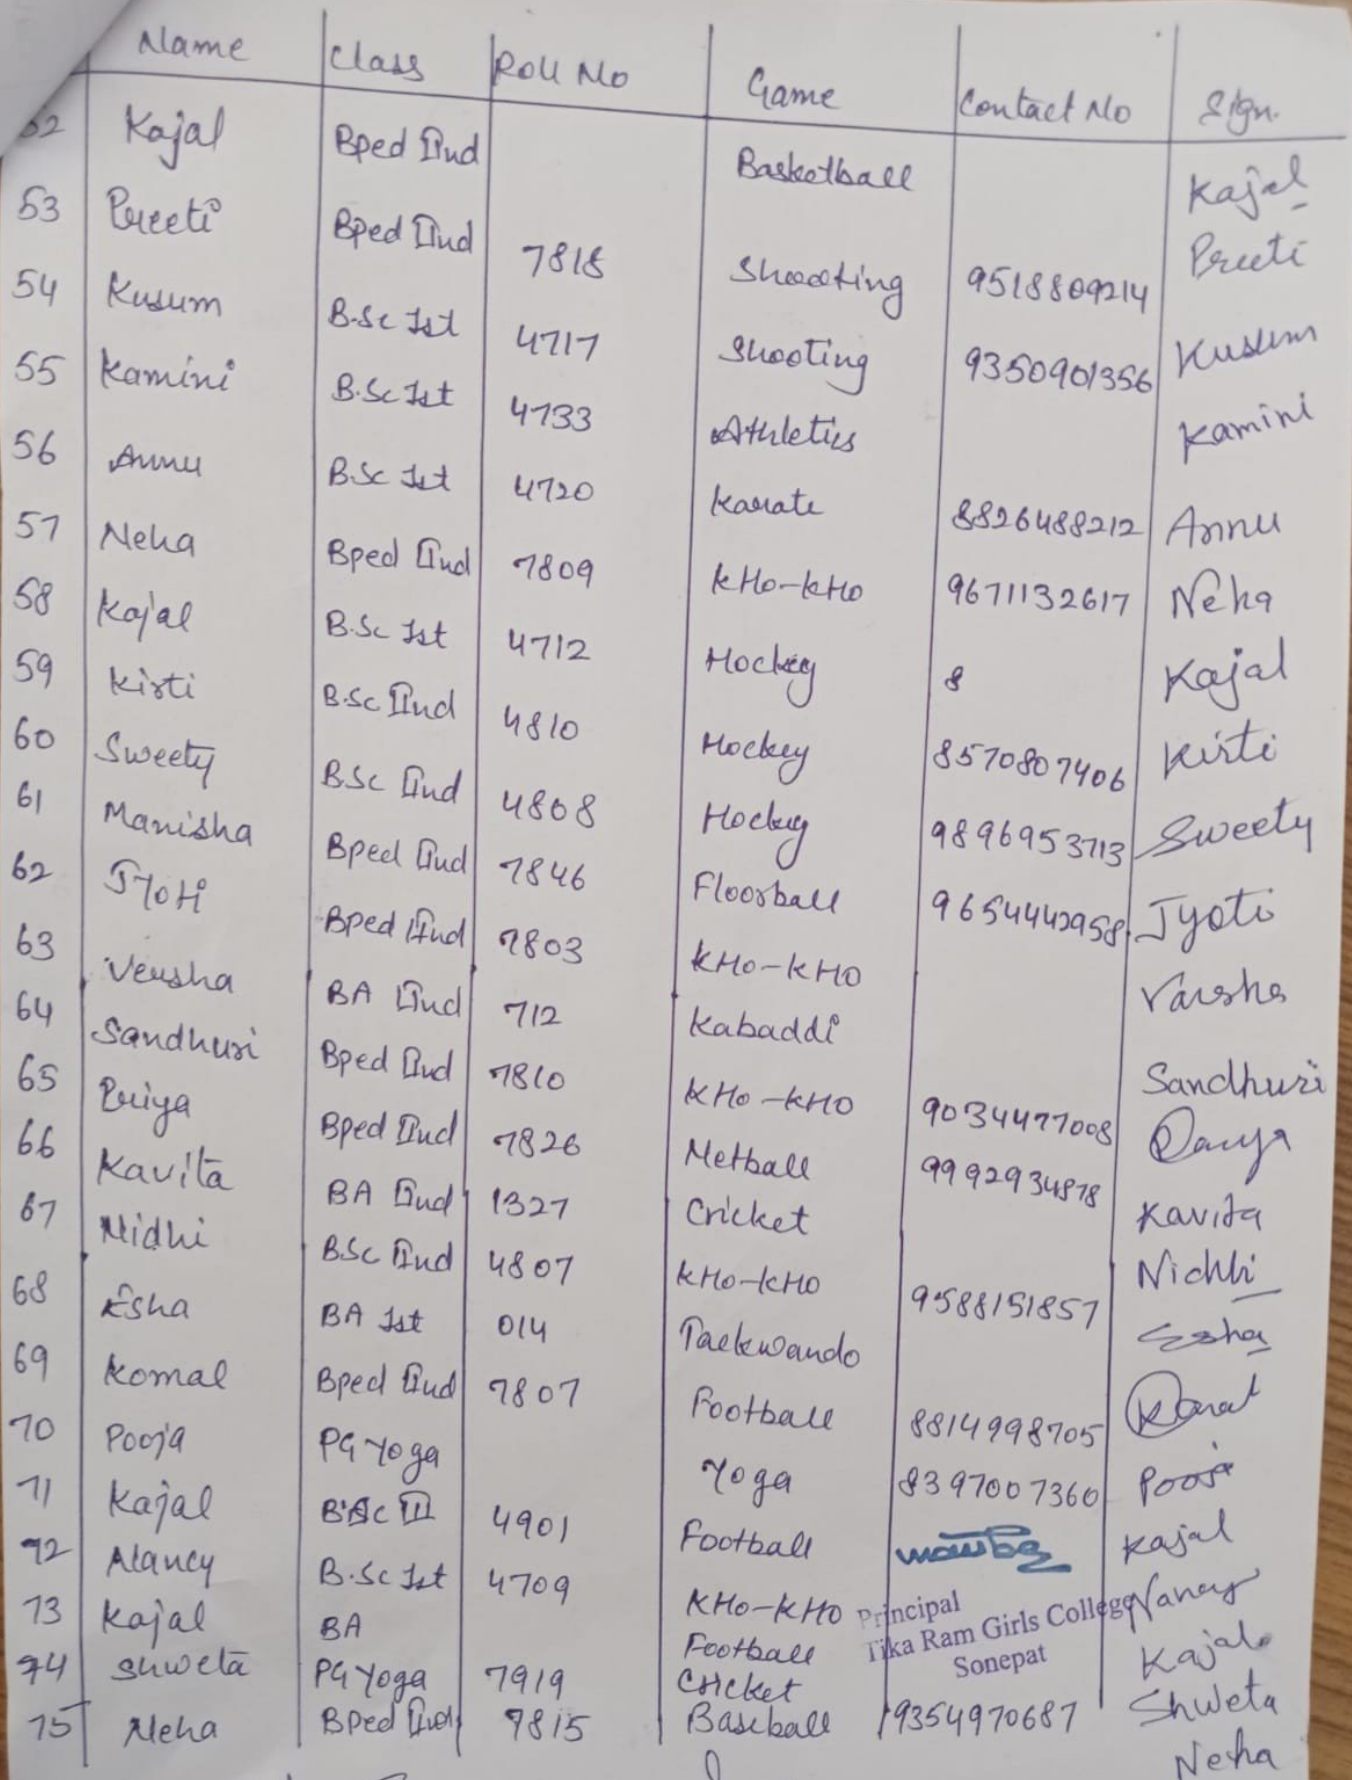 Name Class Roll No Game Contact No Sign.
52 Kajal Bped IInd Basketball Kajal
53 Preeti Bped IInd 7818 Shooting 9518809214 Preeti
54 Kusum B.Sc Ist 4717 Shooting 9350901356 Kusum
55 Kamini B.Sc Ist 4733 Athletics Kamini
56 Annu B.Sc Ist 4720 Karate 8826488212 Annu
57 Neha Bped IInd 7809 KHo-KHo 9671132617 Neha
58 Kajal B.Sc Ist 4712 Hockey 8 Kajal
59 Kirti B.Sc IInd 4810 Hockey 8570807406 Kirti
60 Sweety BSc IInd 4808 Hockey 9896953713 Sweety
61 Manisha Bped IInd 7846 Floorball 9654442958
62 Jyoti Bped IInd 7803 KHo-KHo Jyoti
63 Versha BA IInd 712 Kabaddi Varsha
64 Sandhuri Bped IInd 7810 KHo-KHo 9034477008 Sandhuri
65 Priya Bped IInd 7826 Netball 9992934878
66 Kavita BA IInd 1327 Cricket Kavita
67 Nidhi BSc IInd 4807 KHo-KHo 9588151857 Nidhi
68 Esha BA Ist 014 Taekwando Esha
69 Komal Bped IInd 7807 Football 8814998705
70 Pooja PG Yoga Yoga 8397007360 Pooja
71 Kajal BSc II 4901 Football Kajal
72 Nancy B.Sc Ist 4709 KHo-KHo Nancy
73 Kajal BA Football Kajal
74 Shweta PG Yoga 7919 Cricket Shweta
75 Neha Bped IInd 7815 Baseball 9354970687 Neha
Principal
Tika Ram Girls College
Sonepat